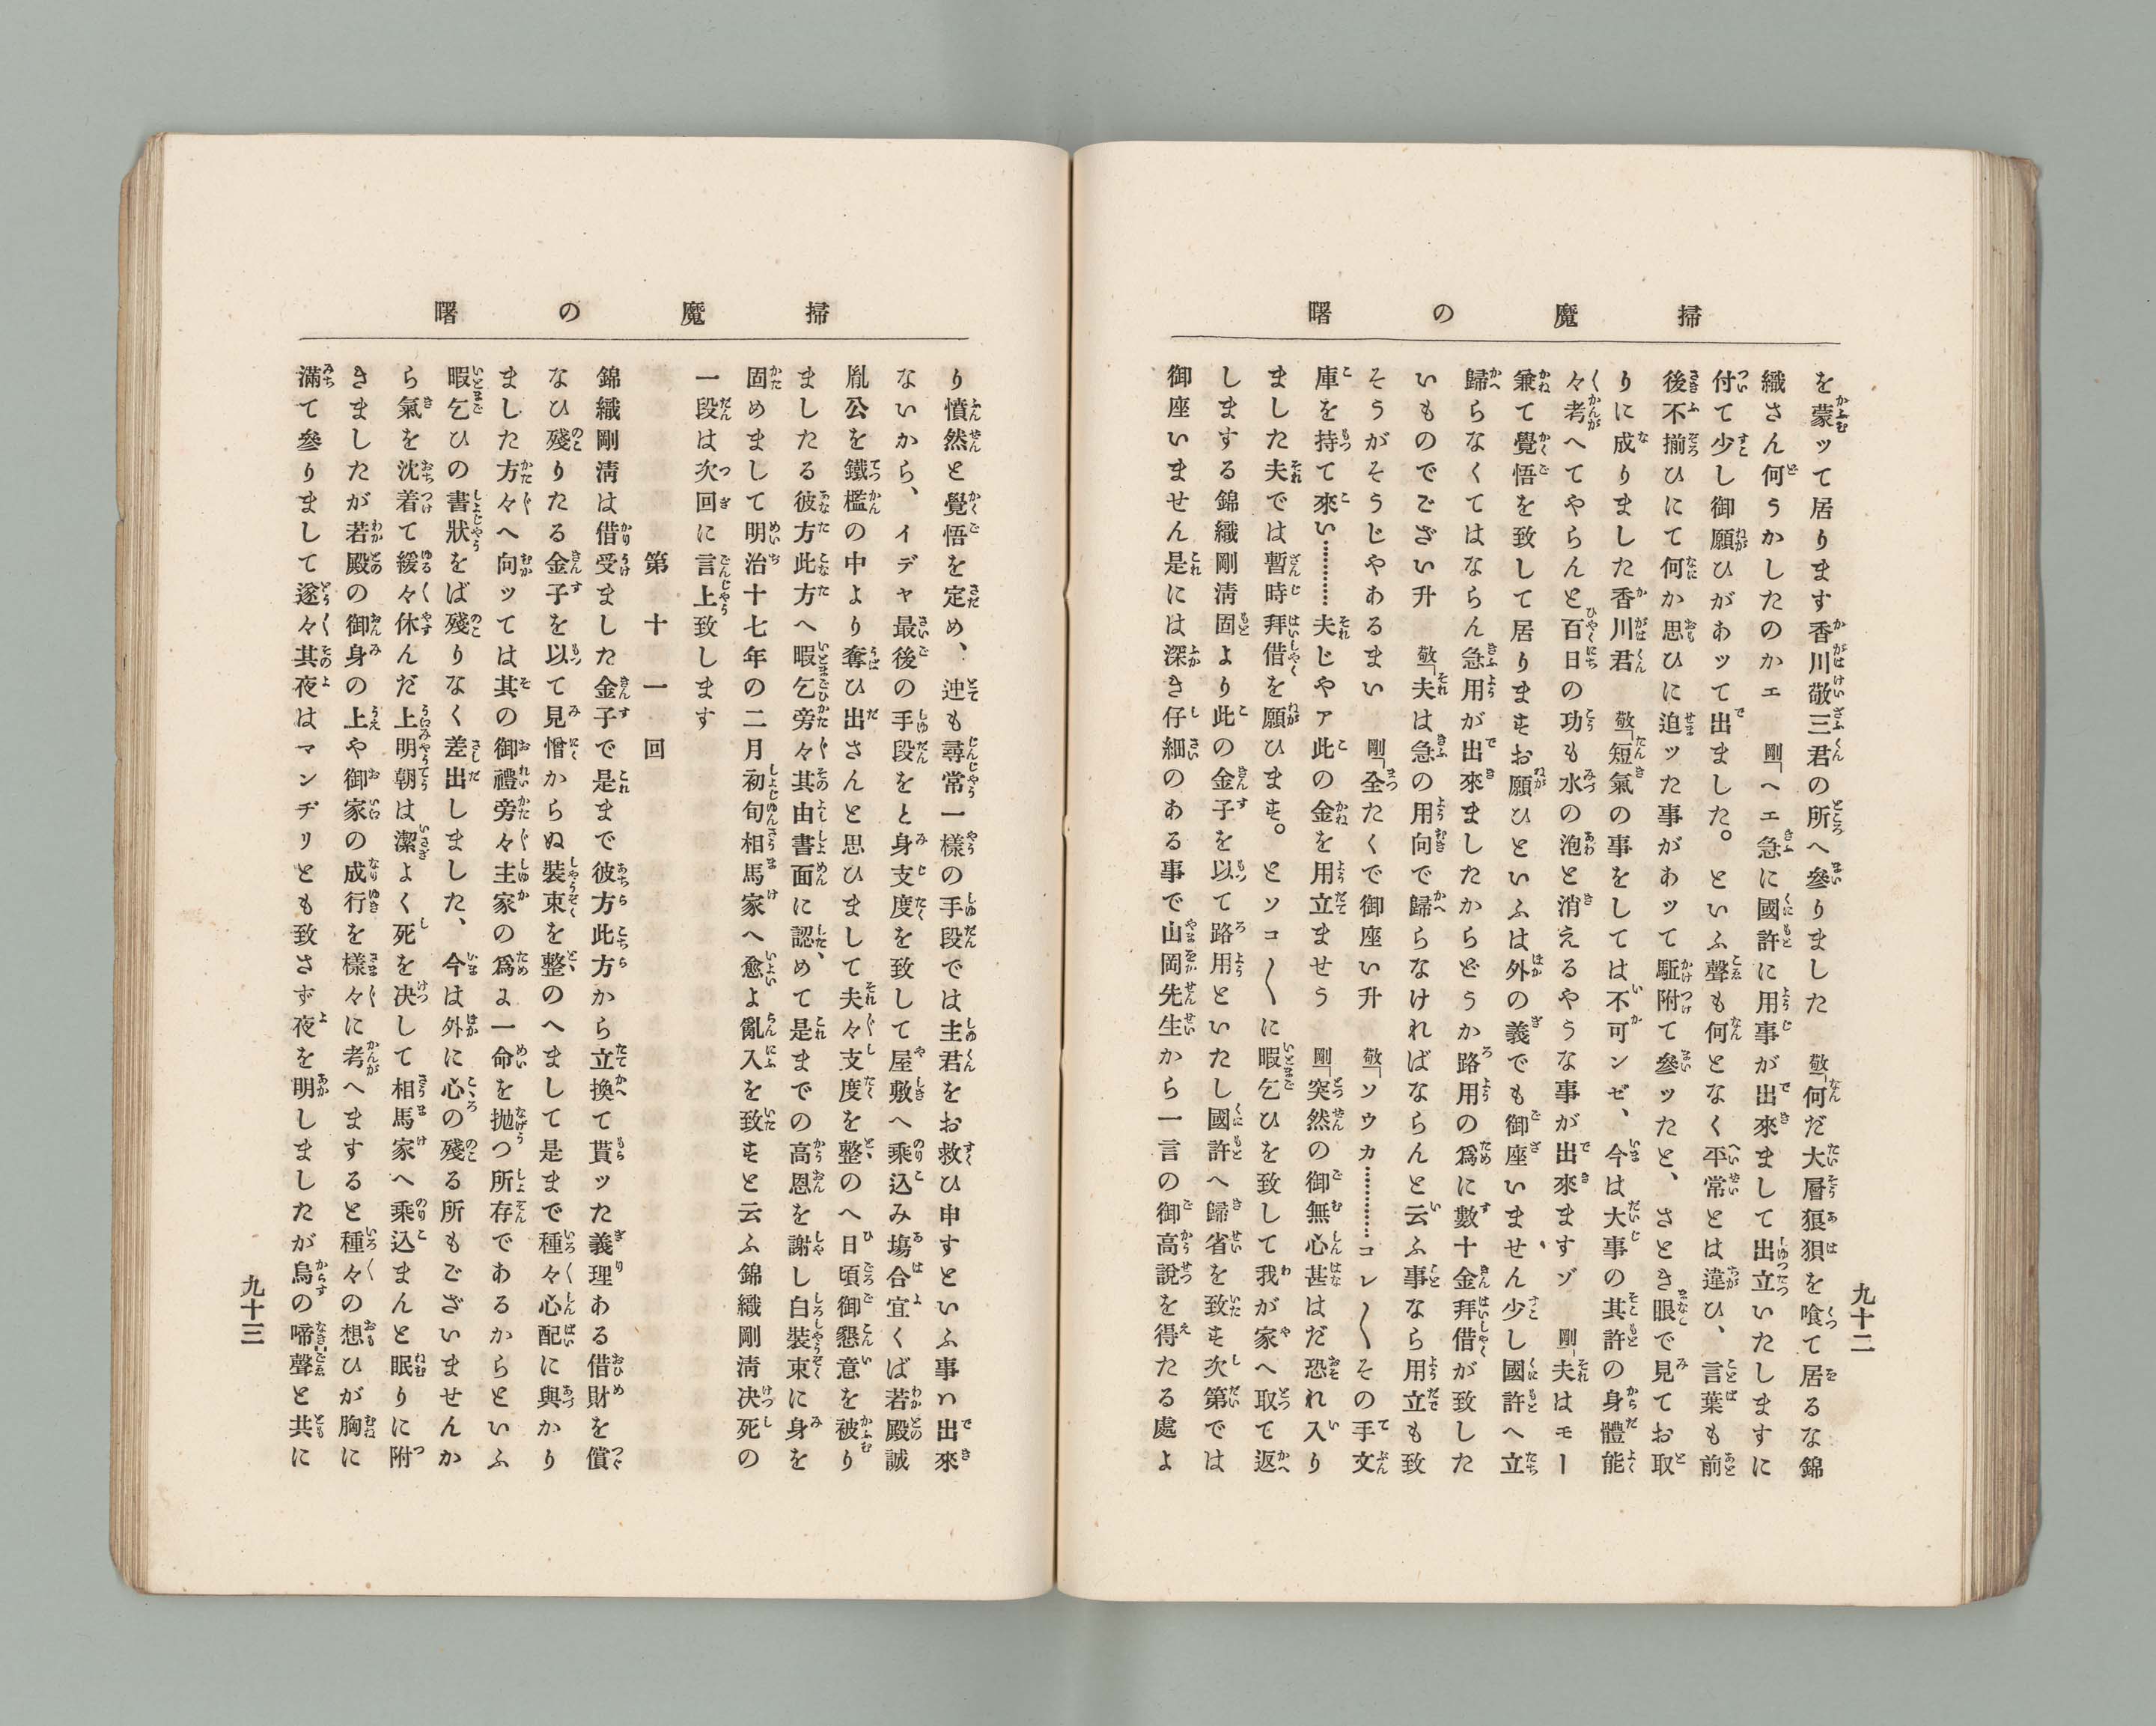 掃魔の曙
を蒙ッて居ります香川敬三君の所へ參りました　敬「何だ大層狼狽を喰て居るな錦
織さん何うかしたのかエ　剛「ヘエ急に國許に用事が出來まして出立いたしますに
付て少し御願ひがあッて出ました。といふ聲も何となく平常とは違ひ、言葉も前
後不揃ひにて何か思ひに迫ッた事があッて駈附て參ッたと、さとき眼で見てお取
りに成りました香川君　敬「短氣の事をしては不可ンぜ、今は大事の其許の身體能
々考へてやらんと百日の功も水の泡と消えるやうな事が出來ますゾ　剛「夫はモー
兼て覺悟を致して居りますお願ひといふは外の義でも御座いません少し國許へ立
歸らなくてはならん急用が出來ましたからどうか路用の爲に數十金拜借が致した
いものでござい升　敬「夫は急の用向で歸らなければならんと云ふ事なら用立も致
そうがそうじやあるまい　剛「全たくで御座い升　敬「ソウカ…………コレ〳〵その手文
庫を持て來い…………夫じやア此の金を用立ませう　剛「突然の御無心甚はだ恐れ入り
ました夫では暫時拜借を願ひます。とソコ〳〵に暇乞ひを致して我が家へ取て返
しまする錦織剛淸固より此の金子を以て路用といたし國許へ歸省を致す次第では
御座いません是には深き仔細のある事で山岡先生から一言の御高說を得たる處よ
九十二
掃魔の曙
り憤然と覺悟を定め、迚も尋常一樣の手段では主君をお救ひ申すといふ事ハ出來
ないから、イデヤ最後の手段をと身支度を致して屋敷へ乘込み塲合宜くば若殿誠
胤公を鐵檻の中より奪ひ出さんと思ひまして夫々支度を整のへ日頃御懇意を被り
ましたる彼方此方へ暇乞旁々其由書面に認めて是までの高恩を謝し白裝束に身を
固めまして明治十七年の二月初旬相馬家へ愈よ亂入を致すと云ふ錦織剛淸决死の
一段は次回に言上致します
第十一回
錦織剛淸は借受ました金子で是まで彼方此方から立換て貰ッた義理ある借財を償
なひ殘りたる金子を以て見憎からぬ裝束を整のへまして是まで種々心配に與かり
ました方々へ向ッては其の御禮旁々主家の爲ゟ一命を抛つ所存であるからといふ
暇乞ひの書狀をば殘りなく差出しました、今は外に心の殘る所もございませんか
ら氣を沈着て緩々休んだ上明朝は潔よく死を决して相馬家へ乘込まんと眠りに附
きましたが若殿の御身の上や御家の成行を樣々に考へますると種々の想ひが胸に
滿て參りまして遂々其夜はマンヂリとも致さず夜を明しましたが烏の啼聲と共に
九十三